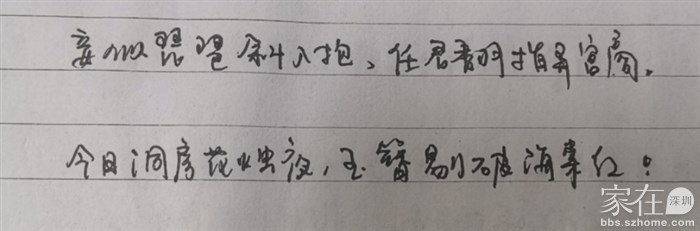 妾似琵琶斜入抱、任君翻指弄宫商。
今日洞房花烛夜，玉簪剔破海棠红！
家在深圳
bbs.szhome.com